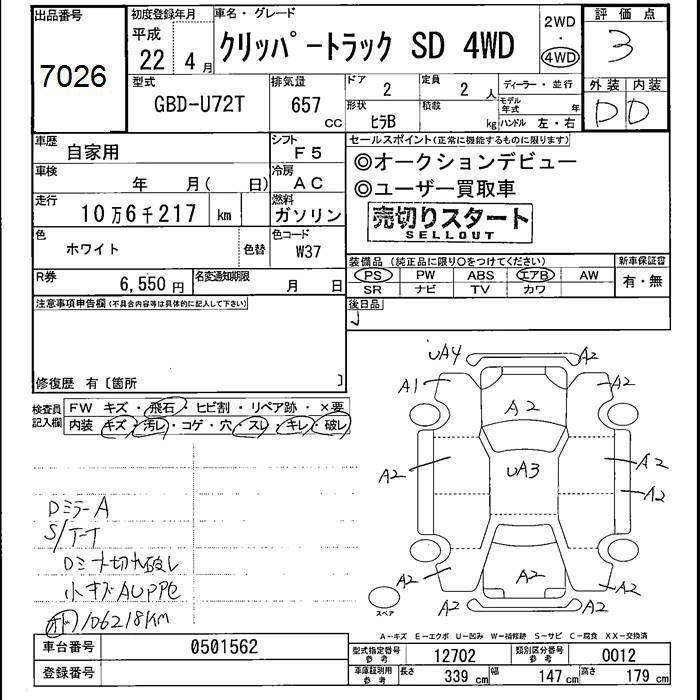 出品番号
7026
初度登録年月
平成
22 年 4 月
車名・グレード
クリッパートラック SD 4WD
2WD
・
4WD
評価点
3
型式
GBD-U72T
排気量
657 CC
ドア
2
定員
2 人
形状
ヒラB
積載
kg
ディーラー・並行
モデル年式 年
ハンドル 左・右
外装 内装
D D
車歴
自家用
シフト
F5
車検
年 月( 日)
冷房
AC
走行
10万6千217 km
燃料
ガソリン
色
ホワイト
色替
色コード
W37
R券
6,550円
名変通知期限
月 日
セールスポイント(正常に機能するものに限ります)
◎オークションデビュー
◎ユーザー買取車
売切りスタート
SELLOUT
装備品(純正品に限り○をつけてください)
PS PW ABS エアB AW
SR ナビ TV カワ
新車保証書
有・無
後日品
注意事項申告欄(不具合内容等は具体的に記入して下さい)
修復歴 有〔箇所 〕
検査員記入欄
FW キズ・飛石・ヒビ割・リペア跡・×要
内装 キズ・汚レ・コゲ・穴・スレ・キレ・破レ
DミラーA
S/T-T
小キズAUPPC
106218KM
UA4
A2
A1
A2
A2
A2
UA3
A2
A2
A2
A2
A2
A2
A2
スペア
A-キズ E-エクボ U-凹み W-補修跡 S-サビ C-腐食 XX-交換済
車台番号
0501562
登録番号
型式指定番号 参考
12702
類別区分番号 参考
0012
車庫証明用 参考
長さ 339 cm
幅 147 cm
高さ 179 cm